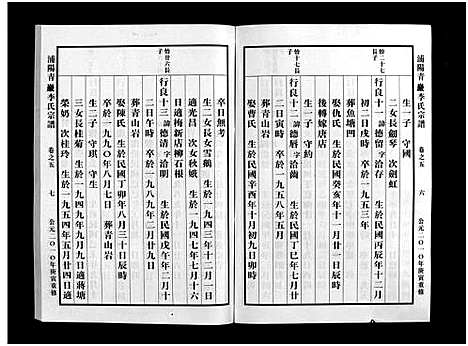 浦陽青巖李氏宗譜
卷之五
六
公元二〇一〇年庚寅重修
生一子 守國
二女長劍琴 次劍虹
恰二十七長子
行良十一 諱德留 字洽存 生於民國丙辰年十二月
初二日戌時 卒於一九五三年
葬魚塘凹
娶仇氏 生於民國癸亥年十一月初十日辰時
後轉嫁唐店
生一子 守約
恰十七長子
行良十二 諱德曆 字洽齒 生於民國丁巳年七月廿
一日寅時
娶曹氏 生於民國辛酉年十月初九日卯時
卒日無考
生二女長女雪鵝 生於一九四三年十二月十
日適梅新店柳石根
適光昌 次女秋娥 生於一九四七年七月十六
恰廿六長子
行良十三 諱德清 字洽明 生於民國戊午年二月十
二日午時 卒於一九八九年二月廿九日
葬青山岩
娶陳氏 生於民國丁卯年八月三十日辰時
卒於一九九〇年八月七日 葬青山岩
生二子 守琪 守生
三女長桂菊 生於一九五〇年五月九日適蔣塘
榮奶 次桂玲 生於一九五四年五月廿四日適
浦陽青巖李氏宗譜
卷之五
七
公元二〇一〇年庚寅重修